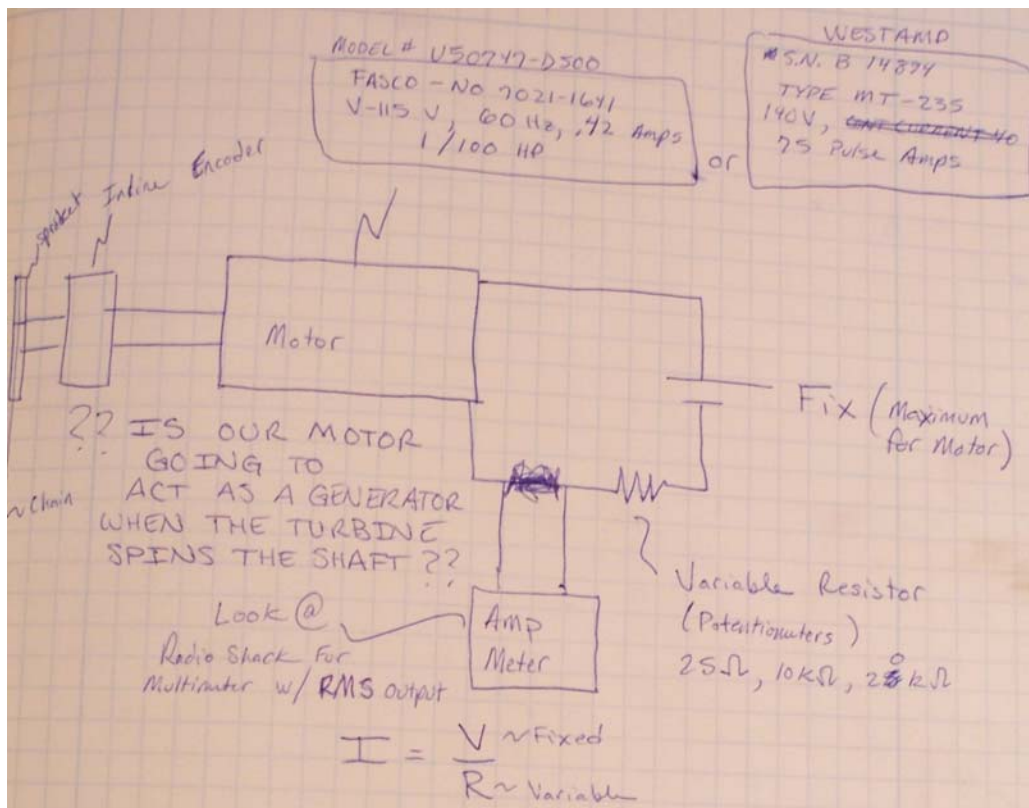 MODEL # U50747-D500
FASCO - NO 7021-1641
V-115 V, 60 Hz, .42 Amps
1/100 HP
or
WESTAMP
S.N. B 14874
TYPE MT-235
140V, CONT CURRENT 40
75 Pulse Amps
sproket
Inline Encoder
Motor
Fix (Maximum
for Motor)
?? IS OUR MOTOR
GOING TO
ACT AS A GENERATOR
WHEN THE TURBINE
SPINS THE SHAFT ??
~Chain
Variable Resistor
(Potentiometers)
25Ω, 10kΩ, 20kΩ
Look @
Radio Shack For
Multimeter w/ RMS output
Amp
Meter
I = V ~Fixed
R ~ Variable